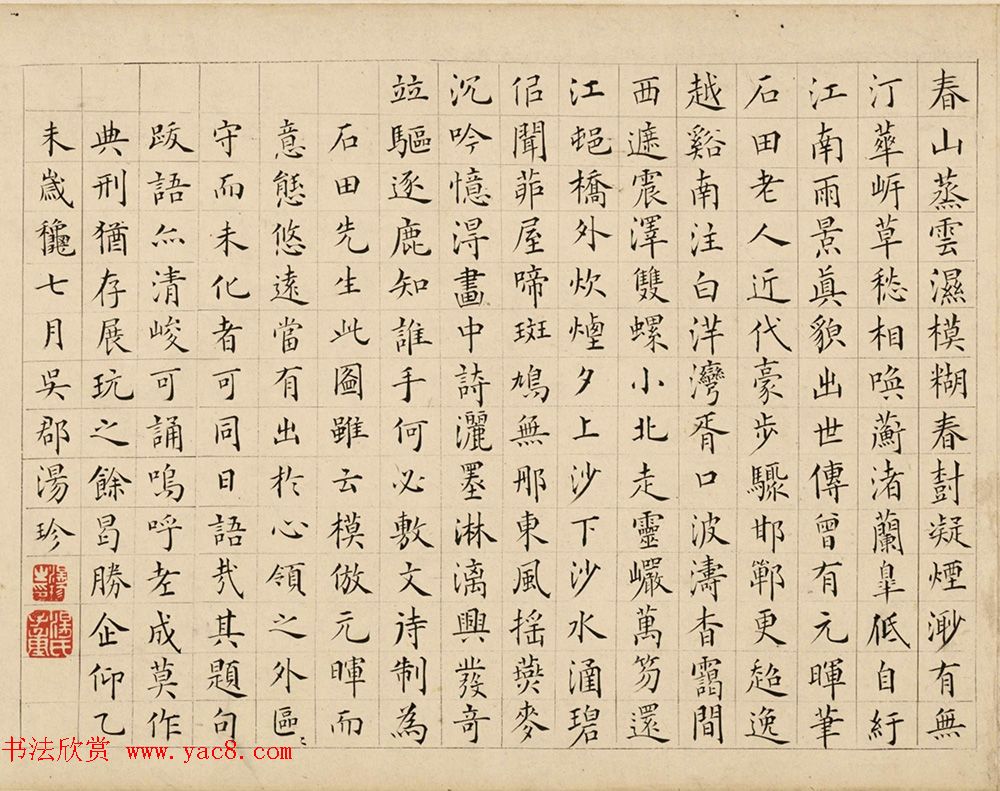 春山蒸雲濕模糊春尌凝煙渺有無
汀蕐岍草愁相喚蘅渚蘭皐低自紆
江南雨景真貌出世傳曾有元暉筆
石田老人近代豪步驟邯鄲更超逸
越谿南注白洋灣胥口波濤杳靄間
西遮震澤雙螺小北走靈巖萬笏還
江蜒橋外炊煙夕上沙下沙水涵碧
佀聞茆屋啼斑鳩無那東風搖燕麥
沉吟憶淂畫中詩灑墨淋漓興發奇
竝驅逐鹿知誰手何必敷文诗制為
石田先生此圖雖云模倣元暉而
意態悠遠當有出於心領之外區〻
守而未化者可同日語哉其題句
跋語亦清峻可誦嗚呼老成莫作
典刑猶存展玩之餘曷勝企仰乙
未歲龝七月吳郡湯珍
湯氏
子重
书法欣赏 www.yac8.com